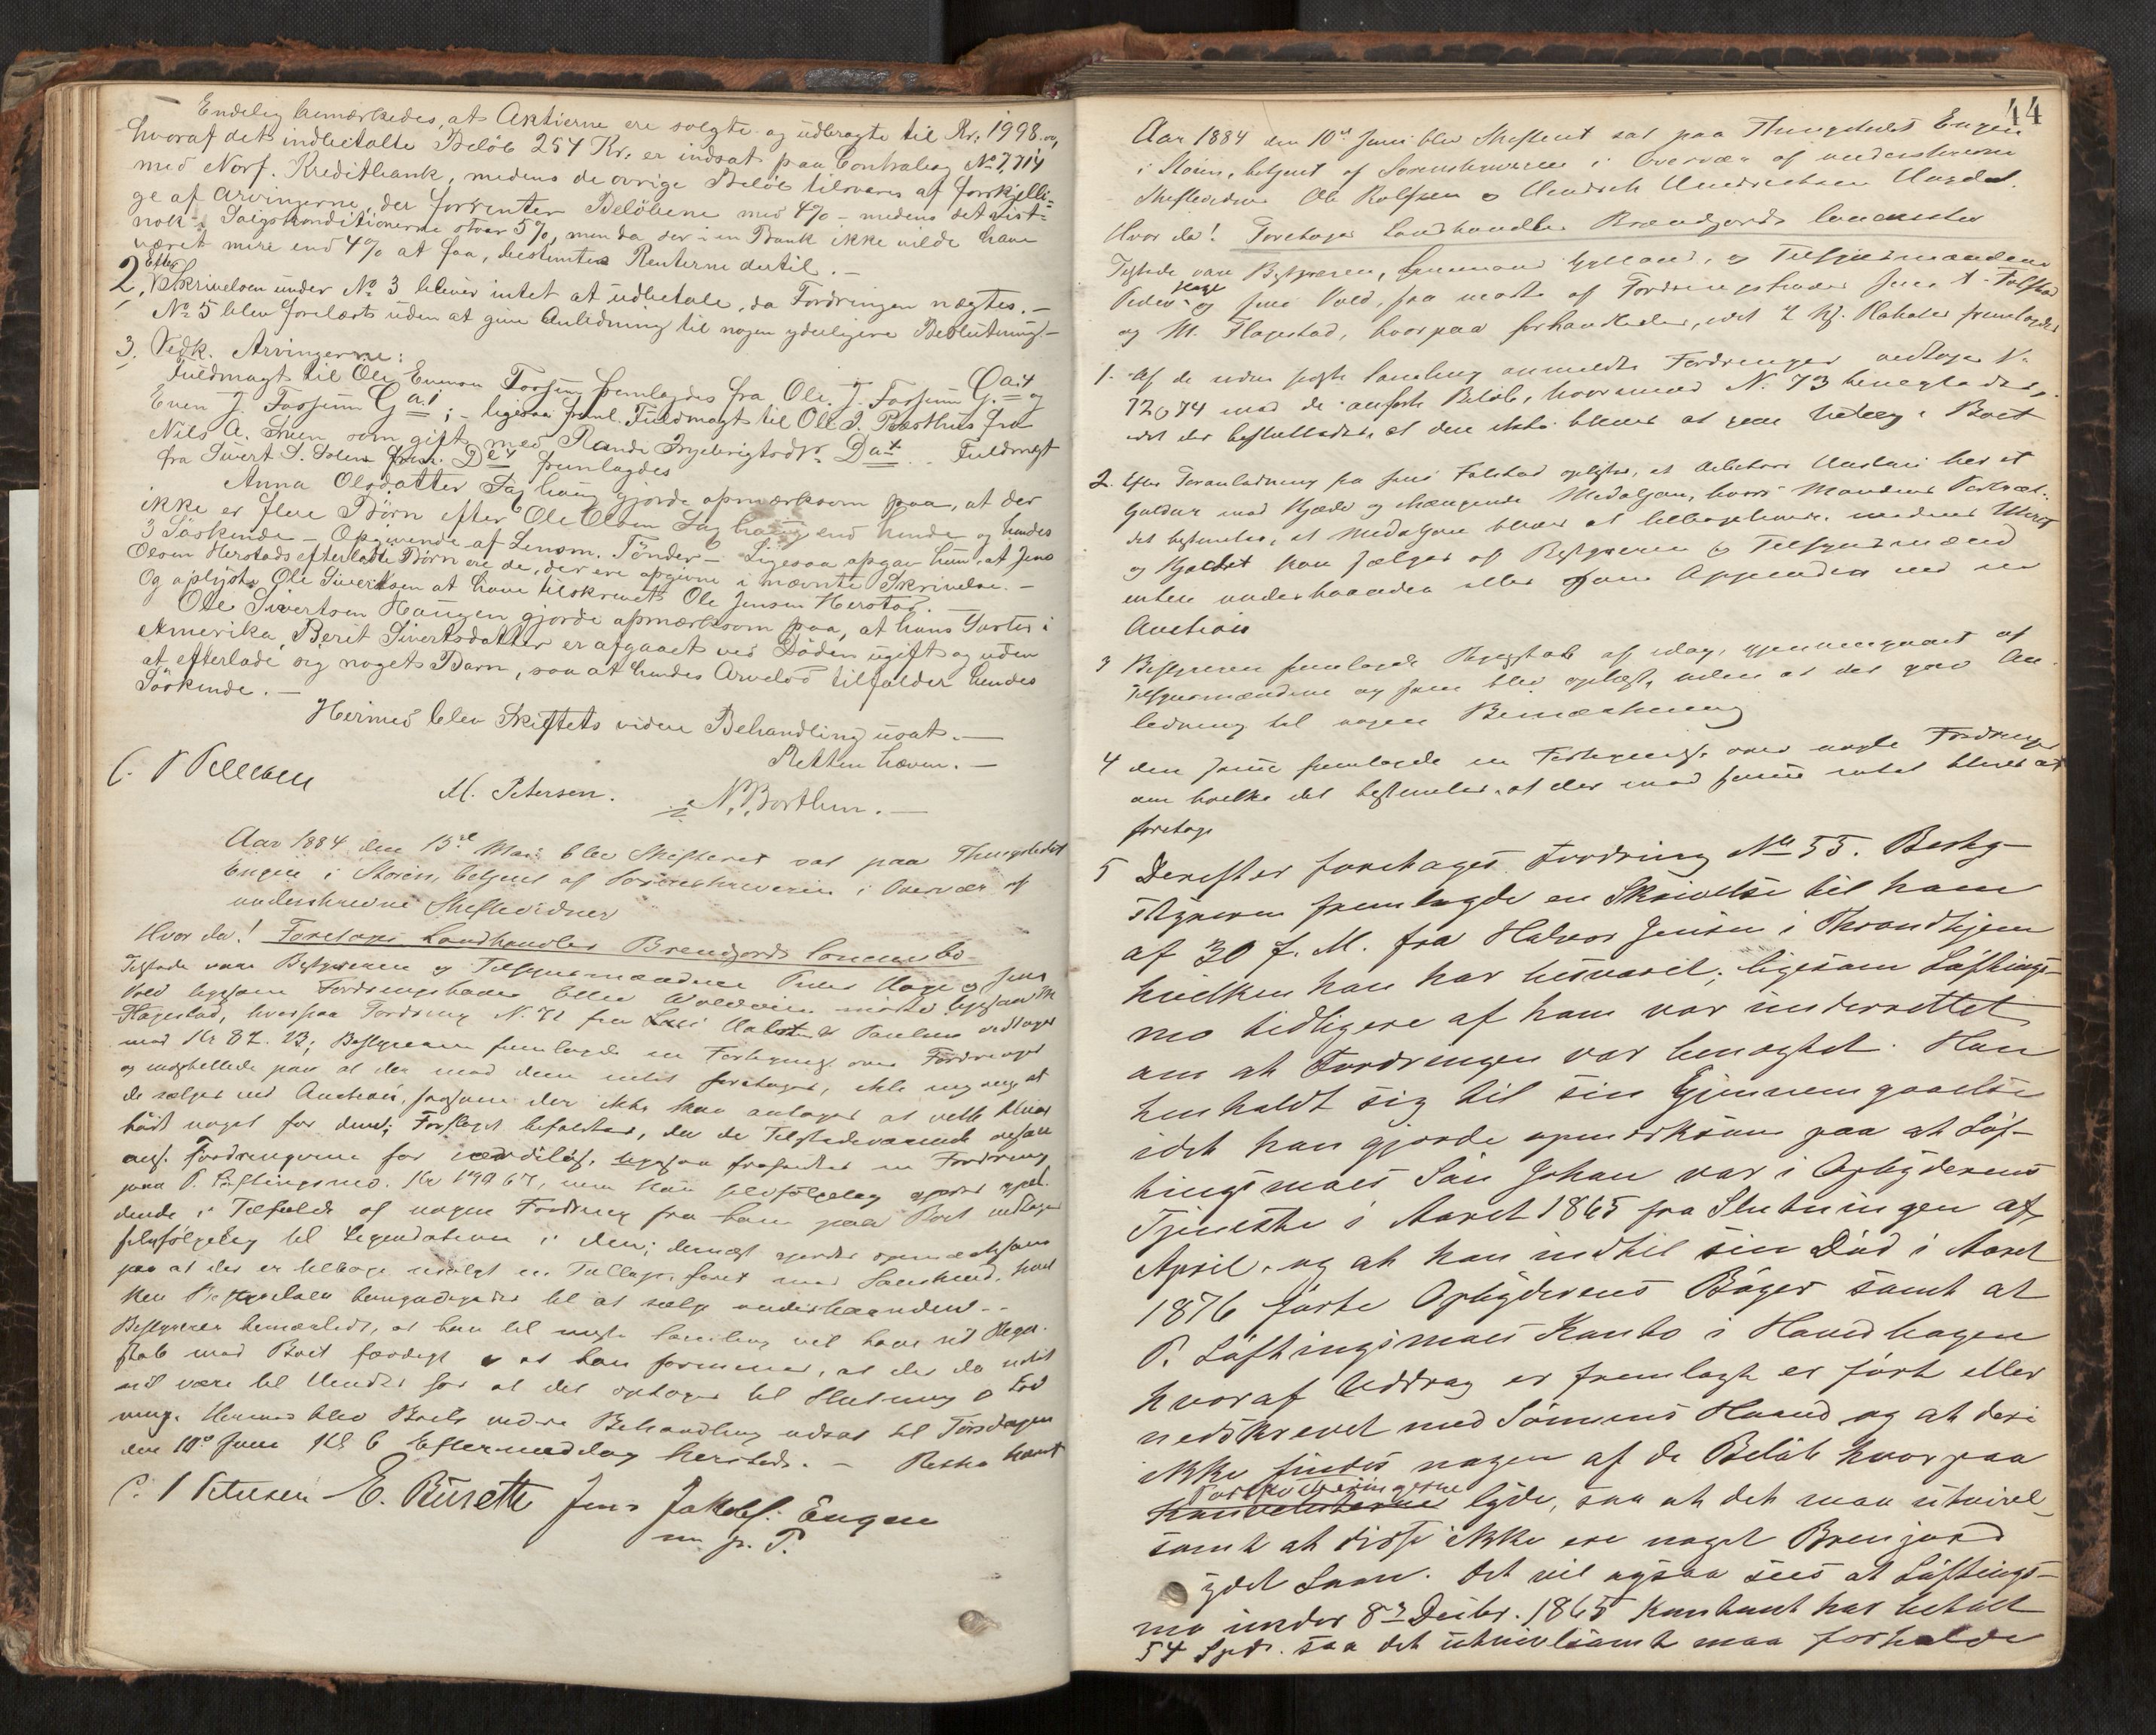 Endelig bemærkedes, at Aktierne ere solgte og udbragte til Kr. 1998.00,
hvoraf det indbetalte Beløb 254 Kr. er indsat paa Contrabog No 7,714
med Norf. Kreditbank, medens de øvrige Beløb tilsvares af forskjelli-
ge af Arvingerne, der forrenter Beløbene med 4% - medens det sidst-
nok i Salgskonditionerne staar 5%, men da der i en Bank ikke vilde have
været mere end 4% at faa, bestemtes Renterne dertil. -
2. Efter Skrivelsen under No 3 bliver intet at udbetale, da Fordringen nægtes. -
No 5 blev forelæst uden at give Anledning til nogen yderligere Beslutning. -
3. Vedk. Arvingerne:
Fuldmagt til Ole Evensen Fossum fremlagdes fra Ole J. Fossum G. og
Even J. Fossum G a 1; - ligesaa freml. Fuldmagt til Ole J. fra
Nils A. som gift med Randi Ingebrigtsdtr. D a .. Fuldmagt
fra Sivert S. Solem fremlagdes
Anna Olsdatter Saghaug gjorde opmærksom paa, at der
ikke er flere Børn efter Ole Olsen Saghaug end hende og hendes
3 Søskende - Opgivende af Lensm. Tønder - Ligesaa opgav hun, at Jens
Olsen Herstads efterladte Børn ere de, der ere opgivne i nævnte Skrivelse. -
Og oplyste Ole Sivertsen at have tilskrevet Ole Jensen Herstad.
Ole Sivertsen Haugen gjorde opmærksom paa, at hans Søster i
Amerika, Berit Sivertsdatter er afgaaet ved Døden ugift og uden
at efterlade sig noget Barn, saa at hendes Arvelod tilfalder hendes
Søskende. -
Hermed blev Skiftets videre Behandling udsat. -
Retten hævet. -
M. Petersen. N. Borthen. -
Aar 1884 den 15de Mai blev Skifteret sat paa Thingstedet
Engen i Støren, betjent af Sorenskriveren i Overvær af
underskrevne Skiftevidner
Hvor da! Foretages Landhandler Brendjords Concursbo
Tilstede vare Bestyreren og Tilsynsmændene Peder Hage og Jens
Vold ligesom Fordringshaver mødte ligesaa M
Flagestad, hvorpaa Fordring N. 72 fra Paulsen vedtages
med Kr 82. 23; Bestyreren fremlagde en Fortegnelse over Fordringer
og indstillede paa at der med dem intet foretages, ikke engang at
de sælges ved Auction, saasom der ikke kan antages at ville blive
budt noget for dem; Forslaget befulgtes, da de Tilstedeværende ogsaa
ans. Fordringerne for værdiløs, ligesaa en Fordring
paa P. Løftingsmo. men kan selvfølgelig gjøres gjæl-
dende i Tilfælde af nogen Fordring fra ham paa Boet vedtages
selvfølgelig til Liqvidation i den; dernæst gjordes opmærksom
paa at der er tilbage usolgt en
ken Bestyrelsen bemyndigedes til at sælge underhaanden. -
Bestyreren bemærkede, at han til næste Samling vil have sit Regn-
skab med Boet færdigt og at han formener, at der da intet
vil være til Hinder for at det optages til Slutning
Hermed blev Boets videre Behandling udsat til Tirsdagen
den 10de Juni Kl 6 Eftermiddag hersteds. - Retten hævet
E. Jens Jakobs. Engen
m. p. P.
44
Aar 1884 den 10de Juni blev Skifteret sat paa Thingstedet Engen
i Støren, betjent af Sorenskriveren i Overvær af underskrevne
Skiftevidner Ole Rolfsen og Hendrik Hendriksen
Hvor da! Foretages Landhandler Brendjords Concursbo
Tilstede vare Bestyreren, Lensmand og Tilsynsmændene
Peder Hage og Jens Vold, fra mødte af Fordringshaver Jens A. Folstad
og M. Flagestad, hvorpaa forhandledes,
1. Af de siden sidste Samling anmeldte Fordringer vedtages N.
72 og 74 med de anførte Beløb, hvorimod N. 73 benegtedes,
2. Efter Foranledning fra Jens Folstad oplystes, at
Guldur med Kjæde og vhængende Medaljon, hvori Mandens Portræt.
det bestemtes, at Medaljonen bliver at tilbagelevere, medens Uhret
og Kjædet kan sælges af Bestyreren og Tilsynsmænd
enten underhaanden eller som Appendix ved en
Auction
3 Bestyreren fremlagde Regnskab af idag, gjennemgaaet af
Tilsynsmændene og som blev oplæst, uden at det gav An-
ledning til nogen Bemærkning
4 den samme fremlagde en Fortegnelse over nogle Fordringer
om hvilke det bestemtes, at der med samme intet bliver at
foretage
5 Derefter foretages Fordring No 55. Besty-
styreren fremlagde en Skrivelse til ham
af 30 f. M. fra Halvor Jensen i Throndhjem
hvilken han har besvaret; ligesom Løftings-
mo tidligere af ham var underrettet
om at Fordringen var benegtet. Han
henholdt sig til sin Gjennemgaaelse
idet han gjorde opmærksom paa at Løf-
tingsmoes Søn Johan var i Opbyderens
Tjeneste i Aaret 1865 fra Slutningen af
April, og at han indtil sin Død i Aaret
1876 førte Opbyderens Bøger samt at
P. Løftingsmoes Konto i Hovedbogen
hvoraf Uddrag er fremlagt er ført eller
nedskrevet med Sønnens Haand og at deri
ikke findes nogen af de Beløb hvorpaa
lyde, saa at det maa utvivl-
somt at disse ikke ere noget Brenjord
ydet Laan. Det vil ogsaa sees at Løftings-
mo under 8de Decbr. 1865 kontant har betalt
54 Spd. saa det utvivlsomt maa forholde